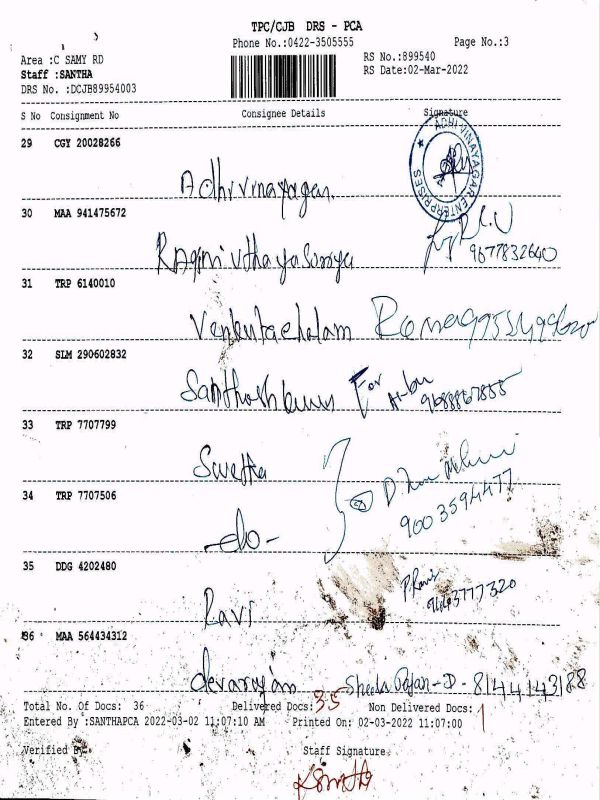 TPC/CJB DRS - PCA
Phone No.:0422-3505555
Page No.:3
Area :C SAMY RD
RS No.:899540
Staff :SANTHA
RS Date:02-Mar-2022
DRS No. :DCJB89954003
S No Consignment No Consignee Details Signature
29 CGY 20028266
ADHI VINAYAGAR ENTERPRISES
Adhivinayagar
30 MAA 941475672
9677832640
31 TRP 6140010
Venkutachalam
32 SLM 290602832
Santhoshkumar For
33 TRP 7707799
Swetha
9003594477
34 TRP 7707506
-do-
35 DDG 4202480
P. Ravi
9443777320
Ravi
36 MAA 564434312
devarajan
Total No. Of Docs: 36 Delivered Docs: 35 Non Delivered Docs: 1
Entered By :SANTHAPCA 2022-03-02 11:07:10 AM Printed On: 02-03-2022 11:07:00
Verified By Staff Signature